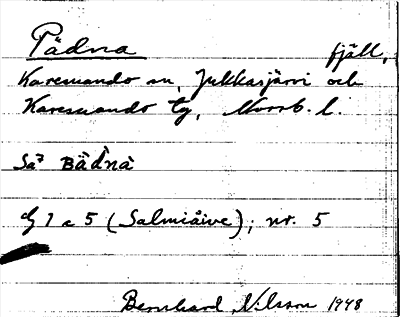 Pädna fjäll,
Karesuando sn, Jukkasjärvi och
Karesuando tg, Norrb. l.
Sa? Bädnà
G 1 a 5 (Salmiåive); nr. 5
Bernhard Nilsson 1948